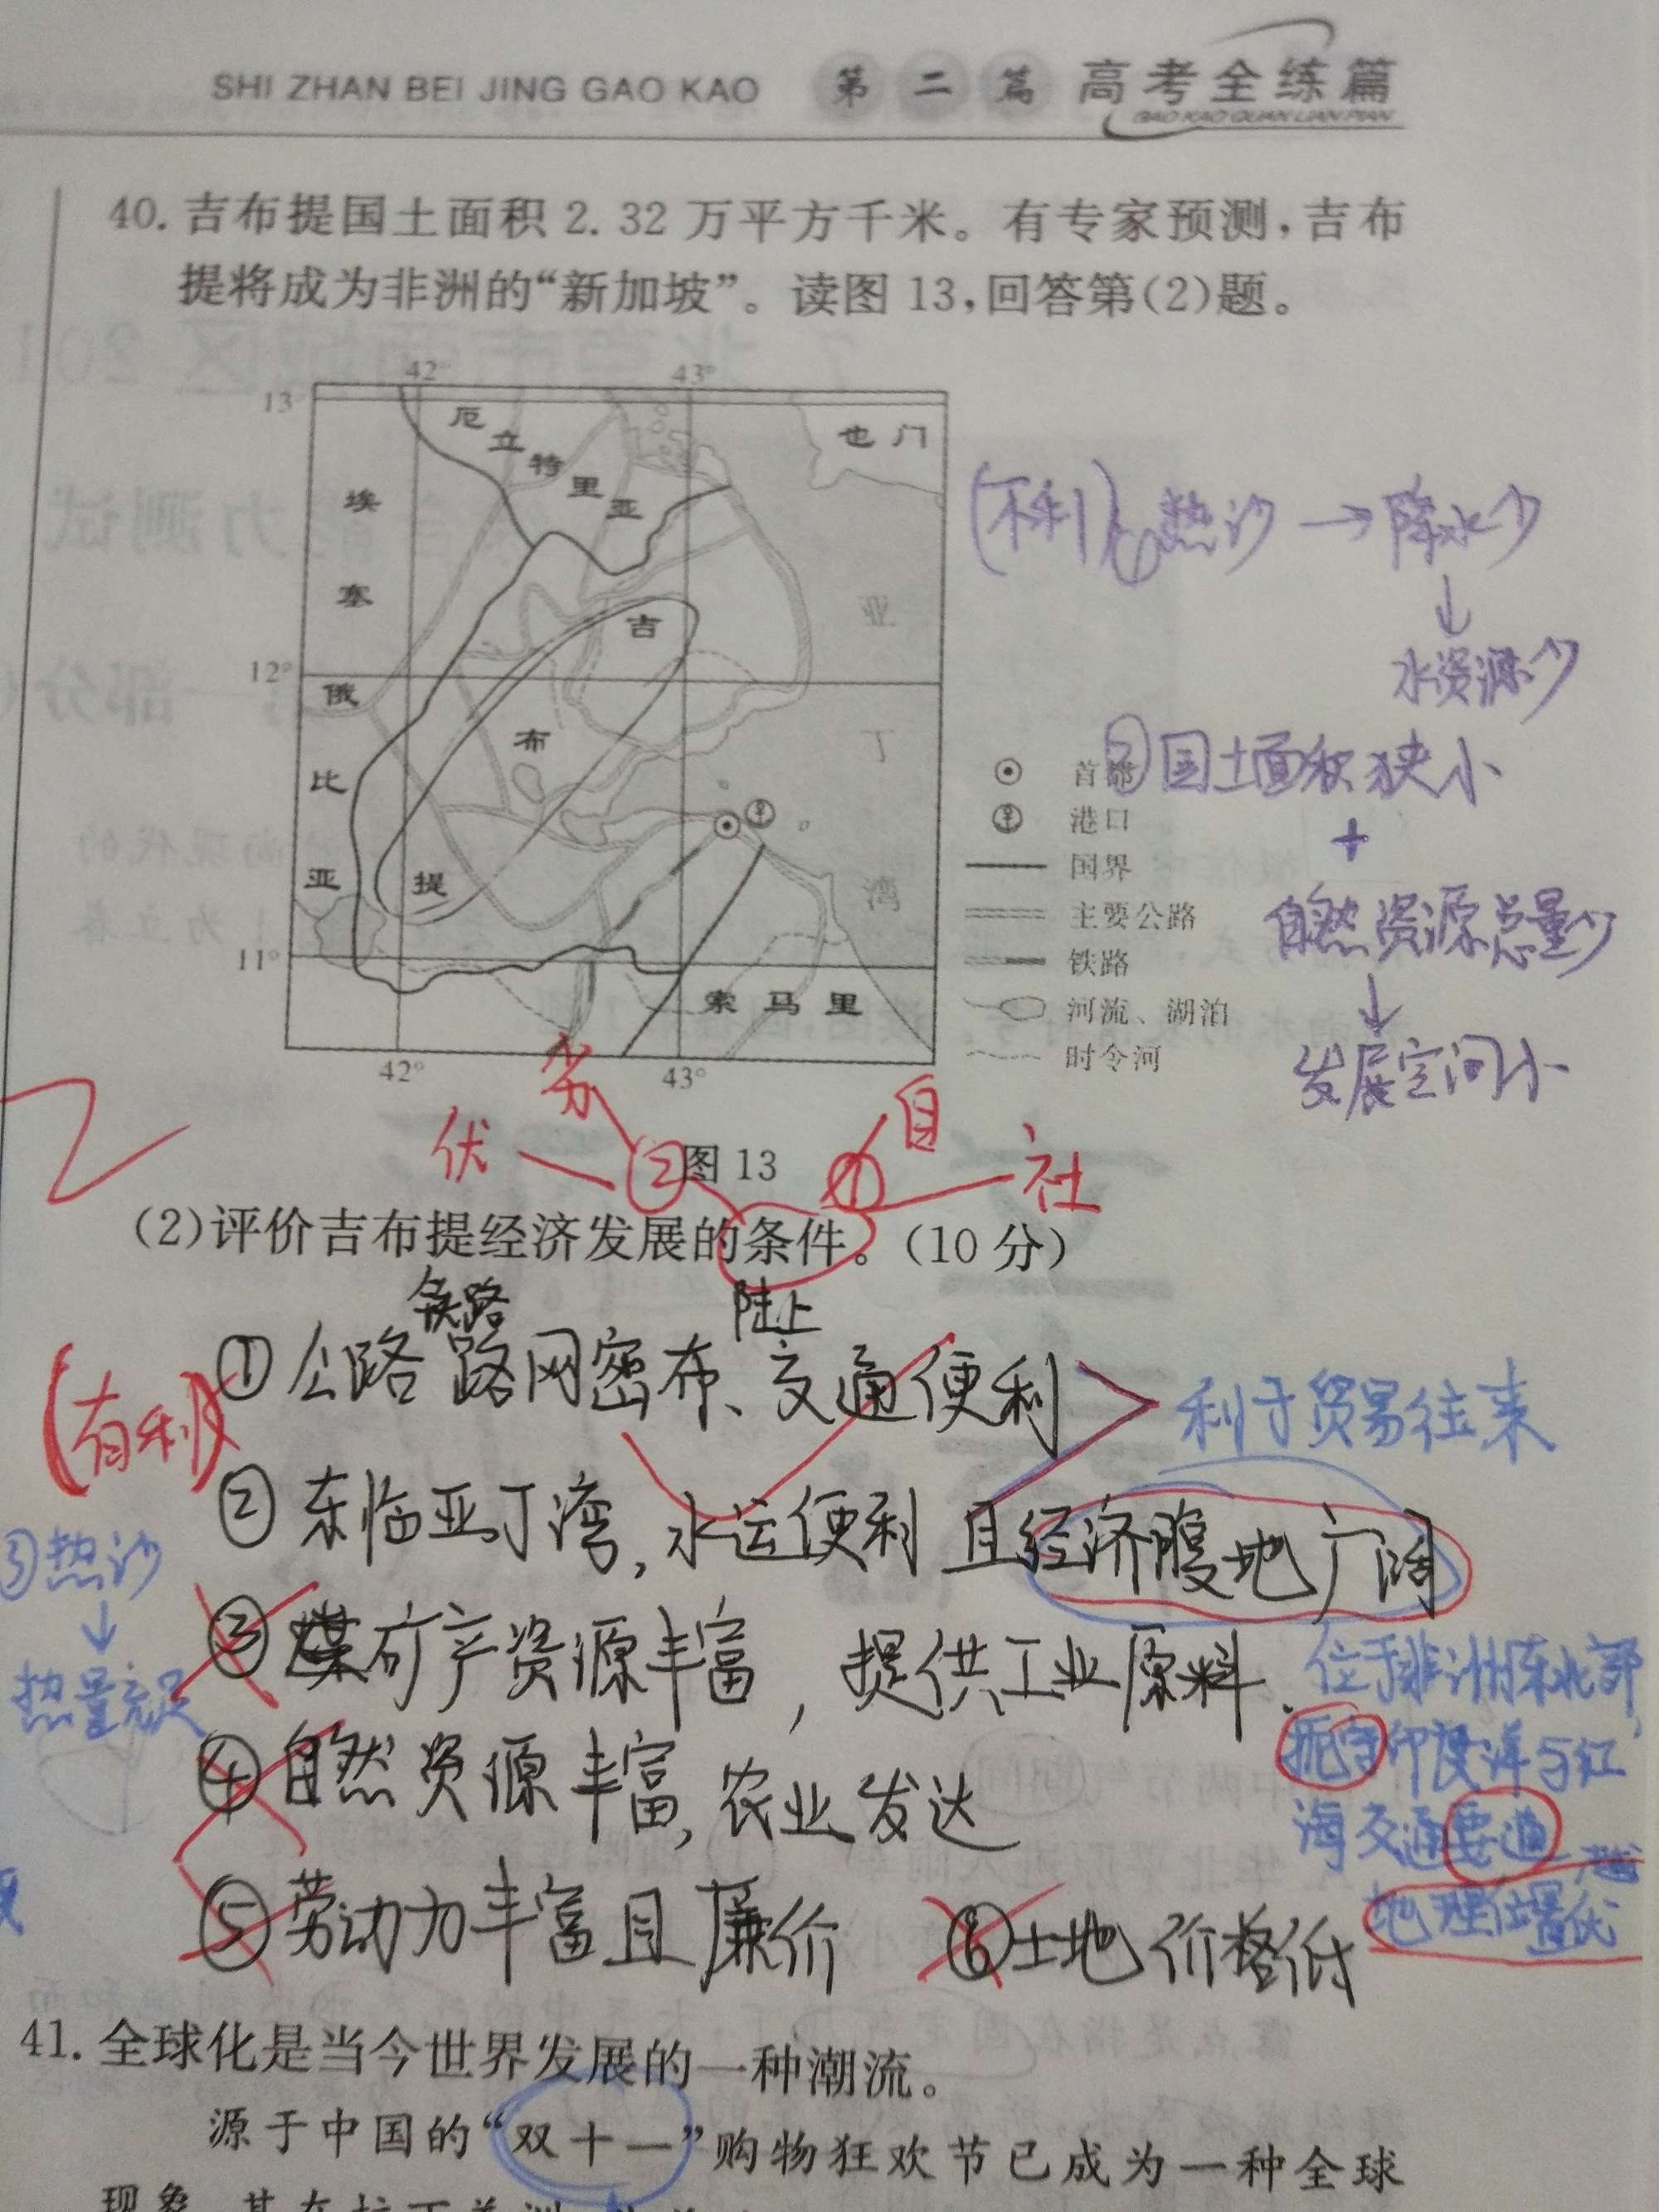 SHI ZHAN BEI JING GAO KAO 第二篇 高考全练篇
GAO KAO QUAN LIAN PIAN
40. 吉布提国土面积 2.32 万平方千米。有专家预测,吉布
提将成为非洲的“新加坡”。读图 13,回答第(2)题。
42° 43°
13°
厄立特里亚
也门
埃塞俄比亚
吉布提
亚丁湾
12°
11°
索马里
42° 43°
首都
港口
国界
主要公路
铁路
河流、湖泊
时令河
(不利) 热沙 → 降水少
↓
水资源少
②国土面积狭小
+
自然资源总量少
↓
发展空间小
劣
优 ② ① 自
社
图 13
(2)评价吉布提经济发展的条件。(10 分)
铁路 陆上
(有利) ①公路路网密布、交通便利 利于贸易往来
②东临亚丁湾,水运便利 且经济腹地广阔
③热沙
↓
热量充足
③煤矿产资源丰富,提供工业原料.
④自然资源丰富,农业发达
⑤劳动力丰富且廉价 ⑥土地价格低
位于非洲东北部,
扼守印度洋与红
海交通要道
地理位置优
41. 全球化是当今世界发展的一种潮流。
源于中国的“双十一”购物狂欢节已成为一种全球
现象